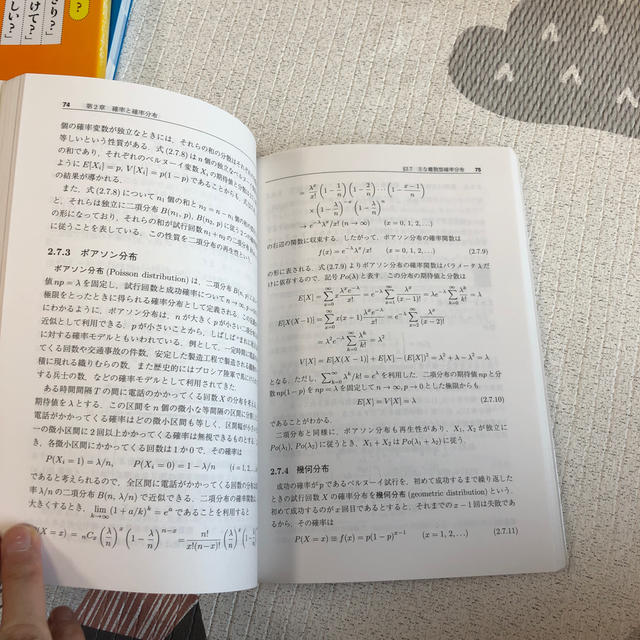 さり?」
けて?」
しい?」
?
74 第2章 確率と確率分布
個の確率変数が独立なときには、それらの和の分散はそれぞれ
等しいという性質がある. 式 (2.7.8) は n 個の独立なベル
の和であり、それぞれのベルヌーイ変数 Xᵢ の期待値と分散は
ように E[Xᵢ]=p, V[Xᵢ]=p(1−p) であることからも、式
の結果が導かれる.
また、式 (2.7.8) について n₁ 個の和と n₂ = n − n₁ 個の和
と、それらは独立に二項分布 B(n₁, p), B(n₂, p) に従う2つの
の形になっており、それらの和が試行回数 n₁+n₂ の二項分布
に従うことを表している. この性質を二項分布の再生性という.
2.7.3 ポアソン分布
ポアソン分布 (Poisson distribution) は、二項分布 B(n, p)
値 np = λ を固定し、試行回数と成功確率について n → ∞, p →
極限をとったときに得られる確率分布として定義される.
にわかるように、ポアソン分布は、n が大きく p が小さい二項
近似として利用できる. p が小さいことから、しばしばまれに
に対する確率モデルともいわれている. 例として、一定時間に
てくる回数や交通事故の件数、安定した製造工程で製造される
積に現れる織りむらの数、また歴史的にはプロシア陸軍で馬に
する兵士の数、などの確率モデルとして利用されてきた.
ある時間間隔 T の間に電話のかかってくる回数 X の分布を考え
期待値を λ とする. この区間を n 個の微小な等間隔の区間に分割
電話がかかってくる確率はどの微小区間も等しく、区間幅が小さい
一小区間に2回以上かかってくる確率は無視できるものとする.
き、各微小区間にかかってくる回数は1か0で、その確率は
P(Xᵢ = 1) = λ/n, P(Xᵢ = 0) = 1 − λ/n (i = 1, 2,
であると考えられるので、全区間に電話がかかってくる回数の分布は
率 λ/n の二項分布 B(n, λ/n) で近似できる. 二項分布の確率関数は
大きくするとき、lim_{k→∞} (1 + a/k)^k = e^a であることを利用すると
P(X = x) = ₙCₓ (λ/n)^x (1 − λ/n)^{n−x} = n!/(x!(n−x)!) (λ/n)^x (1 − λ/n)
§2.7 主な離散型確率分布 75
= λ^x/x! (1 − 1/n)(1 − 2/n) … (1 − (x−1)/n)
× (1 − λ/n)^{−x} (1 − λ/n)^n
→ e^{−λ}λ^x/x! (n → ∞) (x = 0, 1, 2, …)
の右辺の関数に収束する. したがって、ポアソン分布の確率関数は
f(x) = e^{−λ}λ^x/x! (x = 0, 1, 2, …) (2.7.9)
の形に表される. 式 (2.7.9) よりポアソン分布の確率関数はパラメータ λ だ
けに依存するので、記号 Po(λ) と表す. この分布の期待値と分散は
E[X] = Σ_{x=0}^∞ x λ^x e^{−λ}/x! = e^{−λ} Σ_{x=1}^∞ λ^x/(x−1)! = λe^{−λ} Σ_{k=0}^∞ λ^k/k! = λ
E[X(X−1)] = Σ_{x=0}^∞ x(x−1) λ^x e^{−λ}/x! = e^{−λ} Σ_{x=2}^∞ λ^x/(x−2)!
= λ²e^{−λ} Σ_{k=0}^∞ λ^k/k! = λ²
V[X] = E[X(X−1)] + E[X] − (E[X])² = λ² + λ − λ² = λ
となる. ただし、Σ_{k=0}^∞ λ^k/k! = e^λ を利用した. 二項分布の期待値 np と分
散 np(1−p) を np = λ を固定して n → ∞, p → 0 とした極限からも、
E[X] = V[X] = λ (2.7.10)
であることがわかる.
二項分布と同様に、ポアソン分布も再生性があり、X₁, X₂ が独立に
Po(λ₁), Po(λ₂) に従うとき、X₁ + X₂ は Po(λ₁ + λ₂) に従う.
2.7.4 幾何分布
成功の確率が p であるベルヌーイ試行を、初めて成功するまで繰り返し
たときの試行回数 X の確率分布を幾何分布 (geometric distribution) という.
初めて成功するのが x 回目であるとすると、それまでの x − 1 回は失敗であ
るから、その確率は
P(X = x) ≡ f(x) = p(1 − p)^{x−1} (x = 1, 2, …) (2.7.11)